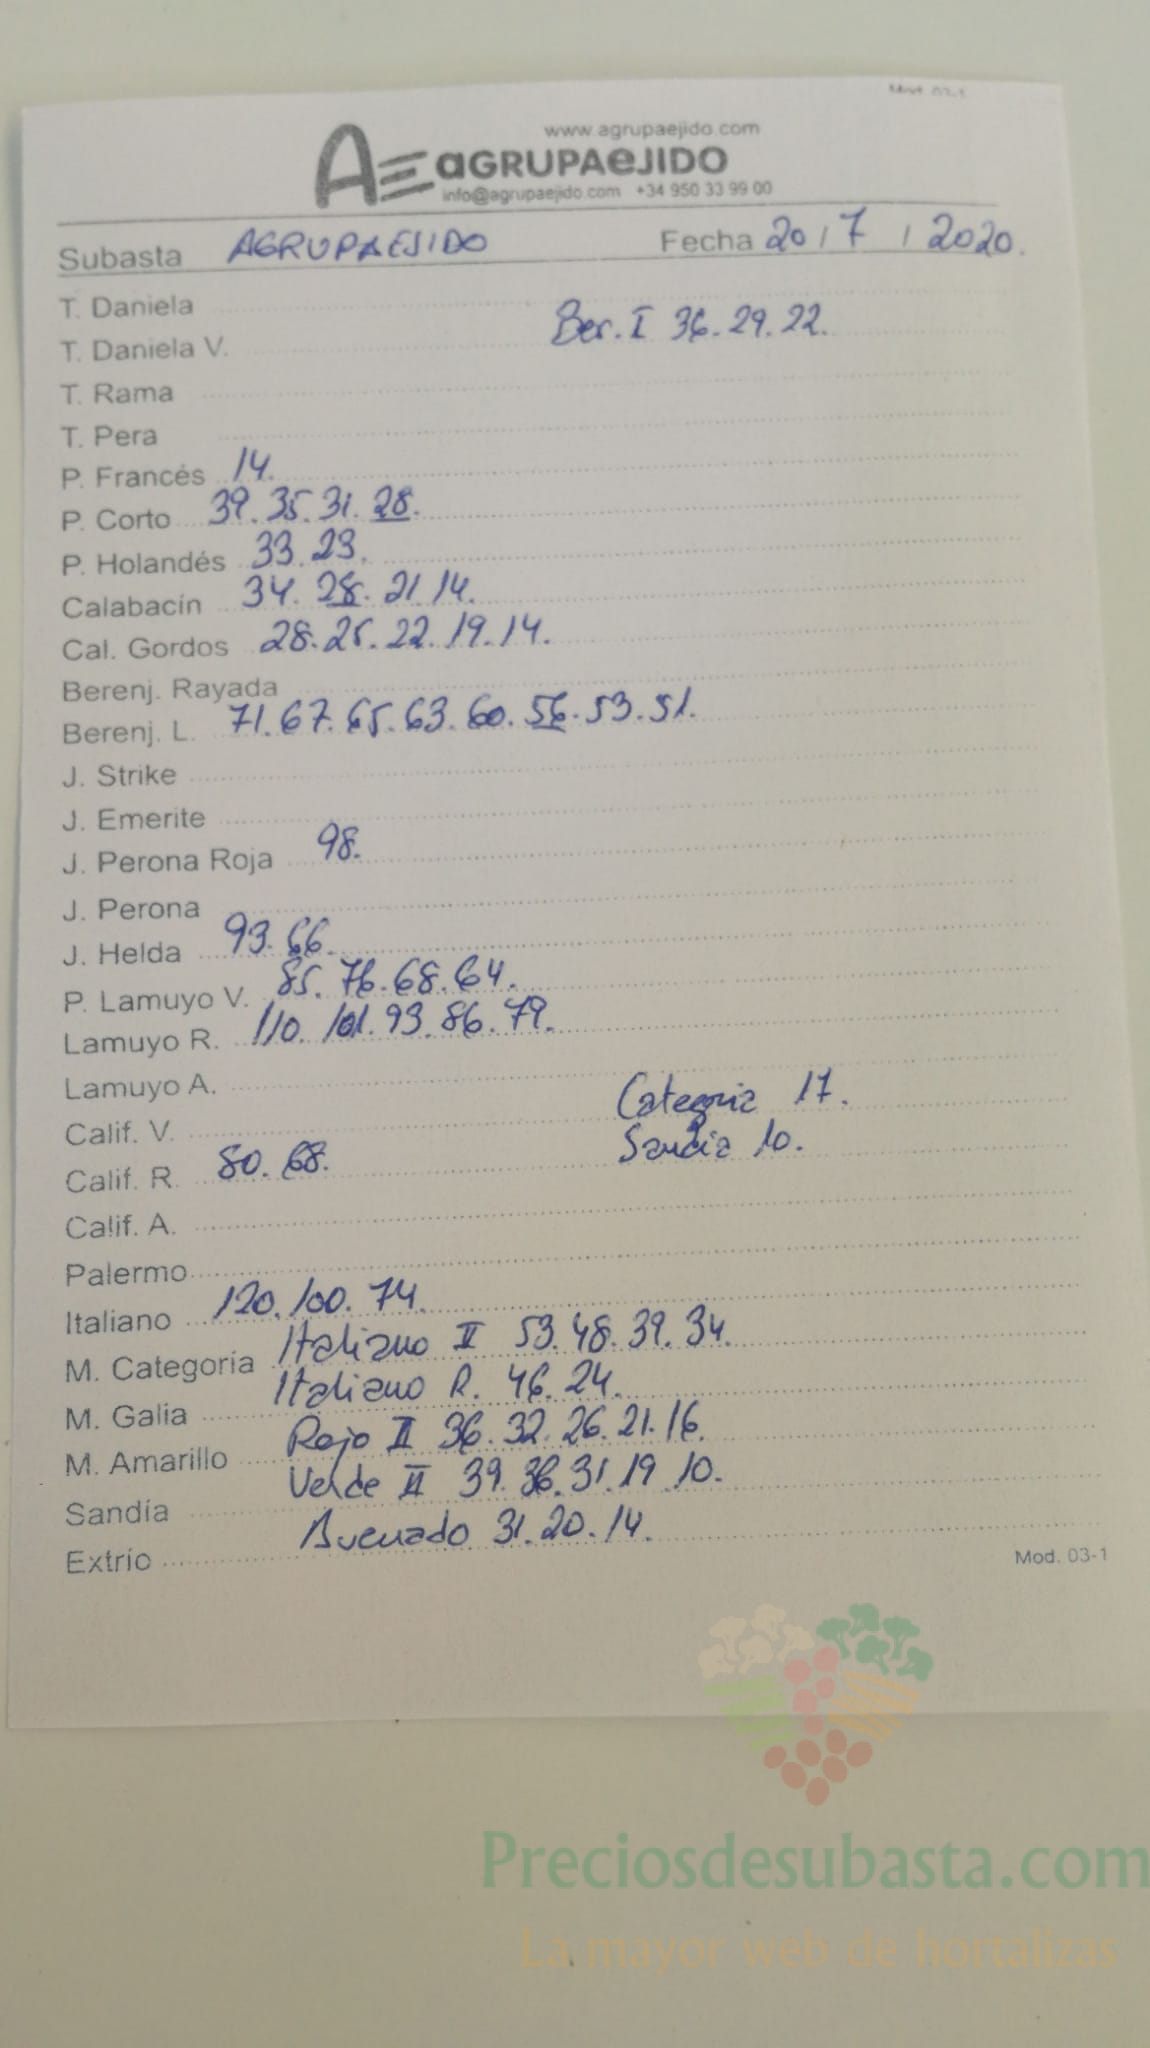 Mod. 03-1
www.agrupaejido.com
AE aGRUPAeJIDO
info@agrupaejido.com +34 950 33 99 00
Subasta AGRUPAEJIDO Fecha 20 / 7 / 2020.
T. Daniela
Ber. I 36. 29. 22.
T. Daniela V.
T. Rama
T. Pera
P. Francés 14.
P. Corto 39. 35. 31. 28.
P. Holandés 33. 23.
Calabacín 34. 28. 21. 14.
Cal. Gordos 28. 25. 22. 19. 14.
Berenj. Rayada
Berenj. L. 71. 67. 65. 63. 60. 56. 53. 51.
J. Strike
J. Emerite
J. Perona Roja 98.
J. Perona
J. Helda 93. 66.
P. Lamuyo V. 85. 76. 68. 64.
Lamuyo R. 110. 101. 93. 86. 79.
Lamuyo A.
Categoria 17.
Calif. V.
Sandia 10.
Calif. R. 80. 68.
Calif. A.
Palermo
Italiano 120. 100. 74.
Italiano II 53. 48. 39. 34.
M. Categoría
Italiano R. 46. 24.
M. Galia
Rojo II 36. 32. 26. 21. 16.
M. Amarillo
Verde II 39. 36. 31. 19. 10.
Sandía
Asurcado 31. 20. 14.
Extrío
Mod. 03-1
Preciosdesubasta.com
La mayor web de hortalizas